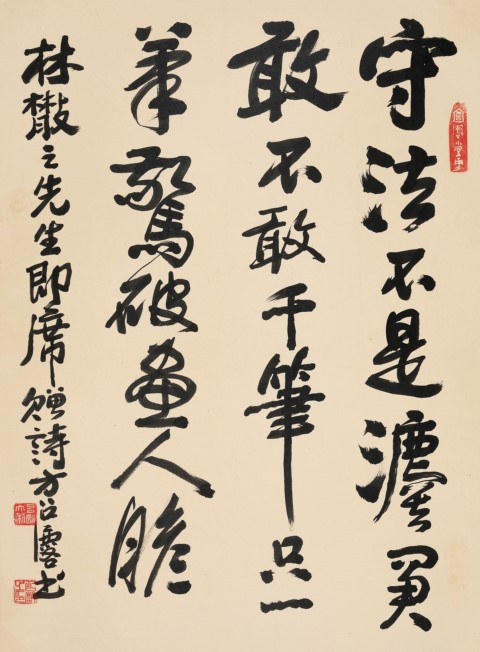 守法不是灋
敢不敢千筆只一
筆驚破畫人膽
林散之先生即席贈詩方召麐书